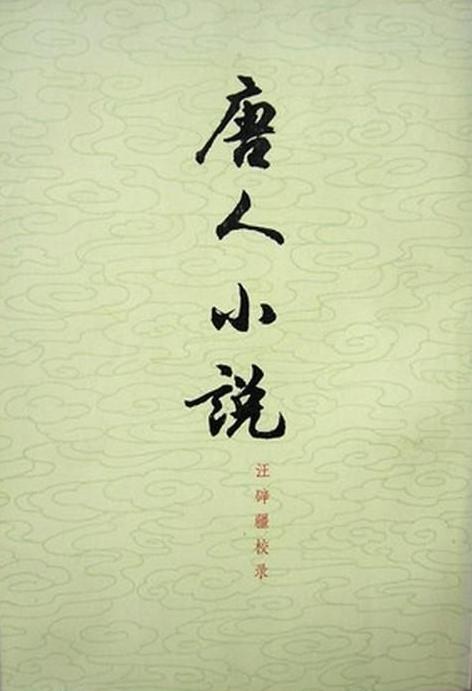 唐人小説
汪辟疆校录